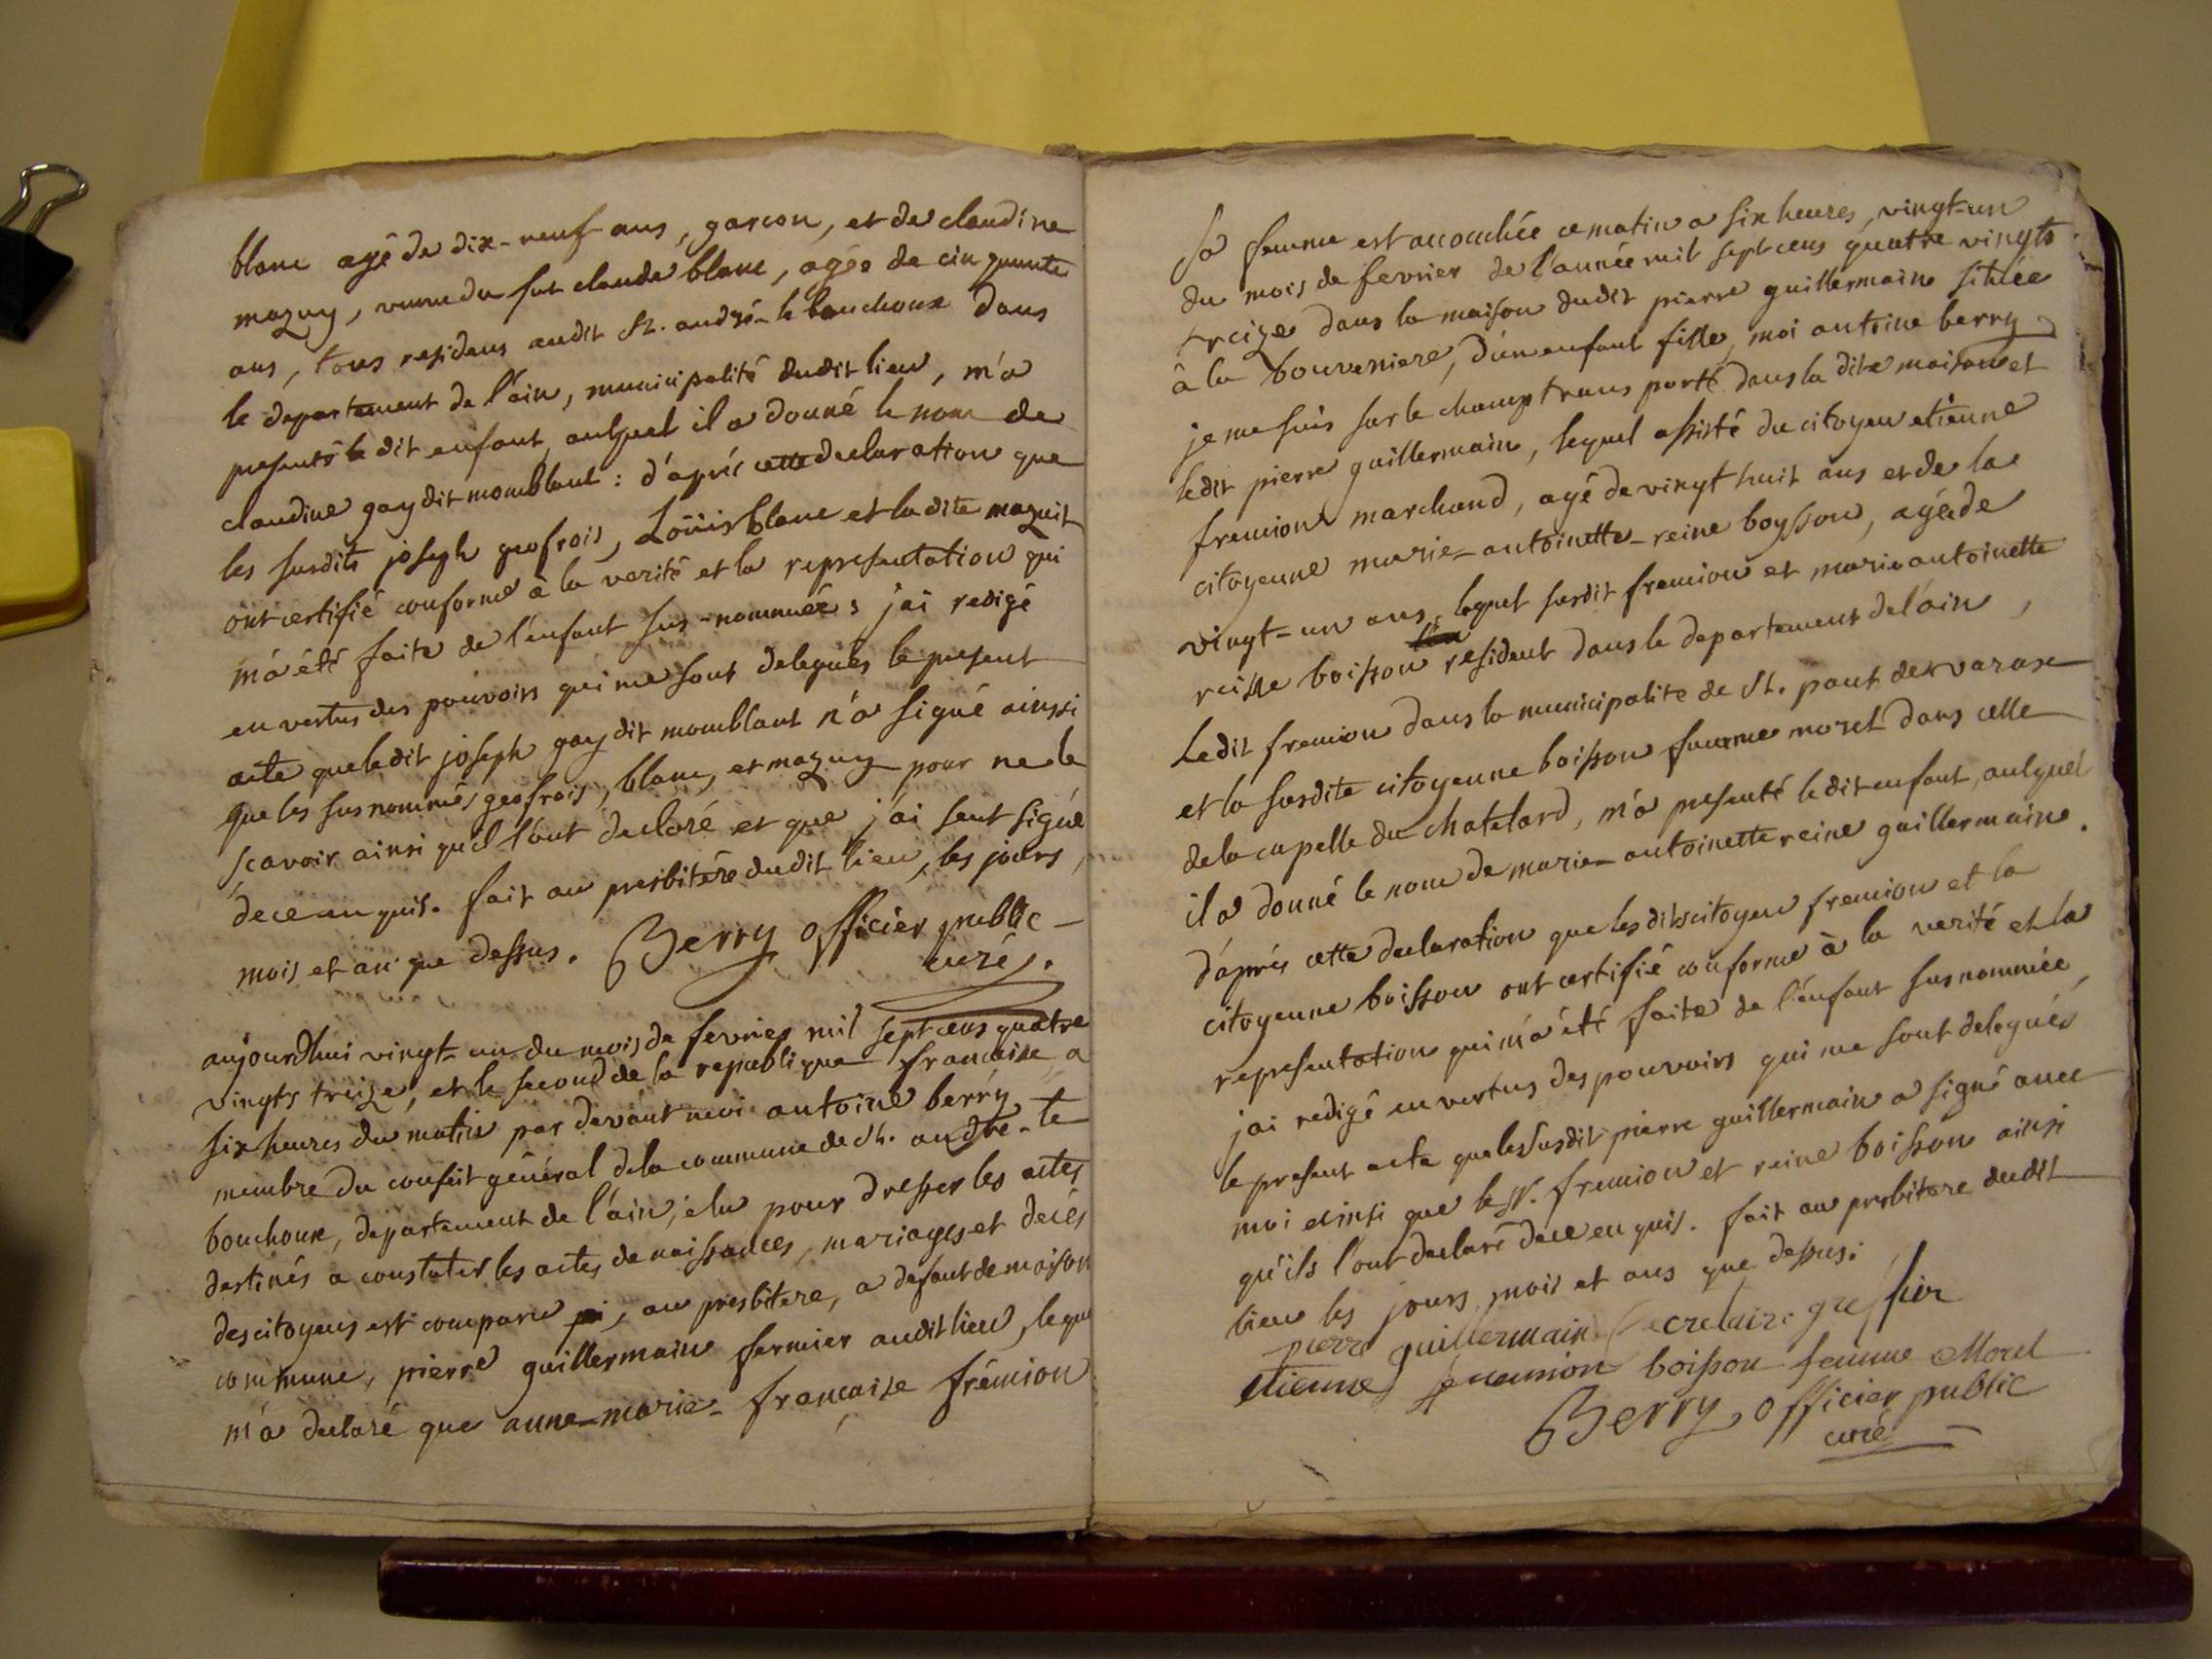 blanc agé de dix-neuf ans, garcon, et de claudine
mazuy, veuve du fut claude blanc, agée de cinquante
ans, tous residans audit St. andré-le bouchoux dans
le departement de l'ain, municipalité dudit lieu, m'a
presenté le dit enfant, auquel il a donné le nom de
claudine gay dit momblant : d'après cette declaration que
les susdits joseph geofrois, Loüis blanc et la dite mazuit
ont certifié conforme à la verité et la representation qui
m'a été faite de l'enfant sus-nommée ; j'ai redigé
en vertus des pouvoirs qui me sont delegués le present
acte que ledit joseph gay dit momblant n'a signé ainssi
que les sus nommés geofrois, blanc, et mazuy pour ne le
scavoir ainsi qu'il l'ont declaré et que j'ai seul signé
de ce enquis. fait au presbitére dudit lieu, les jours,
mois et an que dessus. Berry officier public
curé.
aujourdhui vingt-un du mois de fevrier mil sept cens quatre
vingts treize, et le second de la republique francaise a
six heures du matin par devant moi antoine berry
membre du conseil général de la commune de St. andré-le
bouchoux, departement de l'ain, elu pour dresser les actes
destinés a constater les actes de naissances, mariages et décès
des citoyens est comparu , au presbitere, a defaut de maison
commune, pierre guillermain fermier audit lieu, lequ
m'a declaré que anne-marie-françaize frémion
sa femme est accouchée ce matin a six heures, vingt-un
du mois de fevrier de l'année mil sept cens quatre vingts
treize dans la maison dudit pierre guillermain sitüée
à la bouveniere, d'un enfant fille, moi antoine berry
je me suis sur le champ transporté dans la dite maison et
ledit pierre guillermain, lequel assisté du citoyen etienne
fremion marchand, agé de vingt huit ans et de la
citoyenne marie-antoinette-reine boysson, agée de
vingt-un ans, lequel susdit fremion et marie antoinette
reine boisson resident dans le departement de l'ain,
Ledit fremion dans la municipalite de St. paul de varax
et la susdite citoyenne boisson femme morel dans celle
de la capelle du chatelard, m'a presenté le dit enfant, auquel
il a donné le nom de marie-antoinette reine guillermaine.
d'après cette declaration que les dits citoyen fremion et la
citoyenne boisson ont certifié conforme à la verité et la
representation qui m'a été faite de l'enfant sus nommée,
j'ai redigé en vertus des pouvoirs qui me sont delegués
le present acte que le susdit pierre guillermain a signé avec
moi ainsi que le Sr. fremion et reine boisson ainsi
qu'ils l'ont declaré de ce enquis. fait au presbitere dudit
lieu les jours, mois et ans que dessus.
pierre guillermain secretaire greffier
etienne fremion boisson femme Morel
Berry, officier public
curé